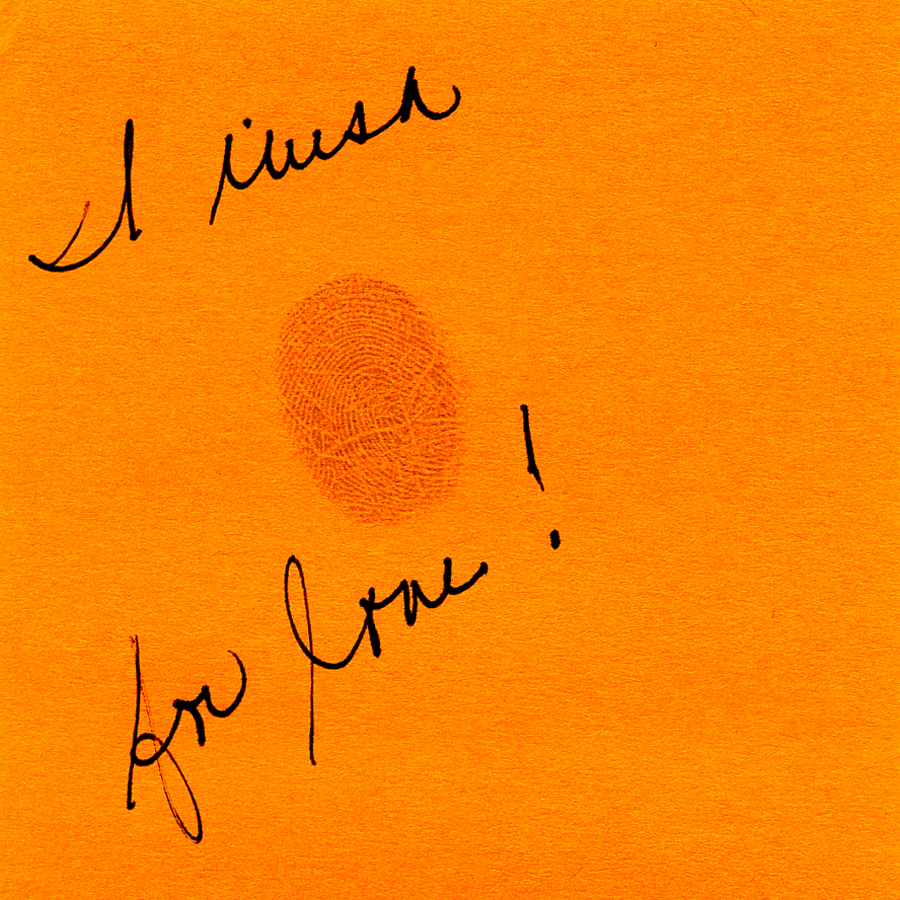 I wish
for love!